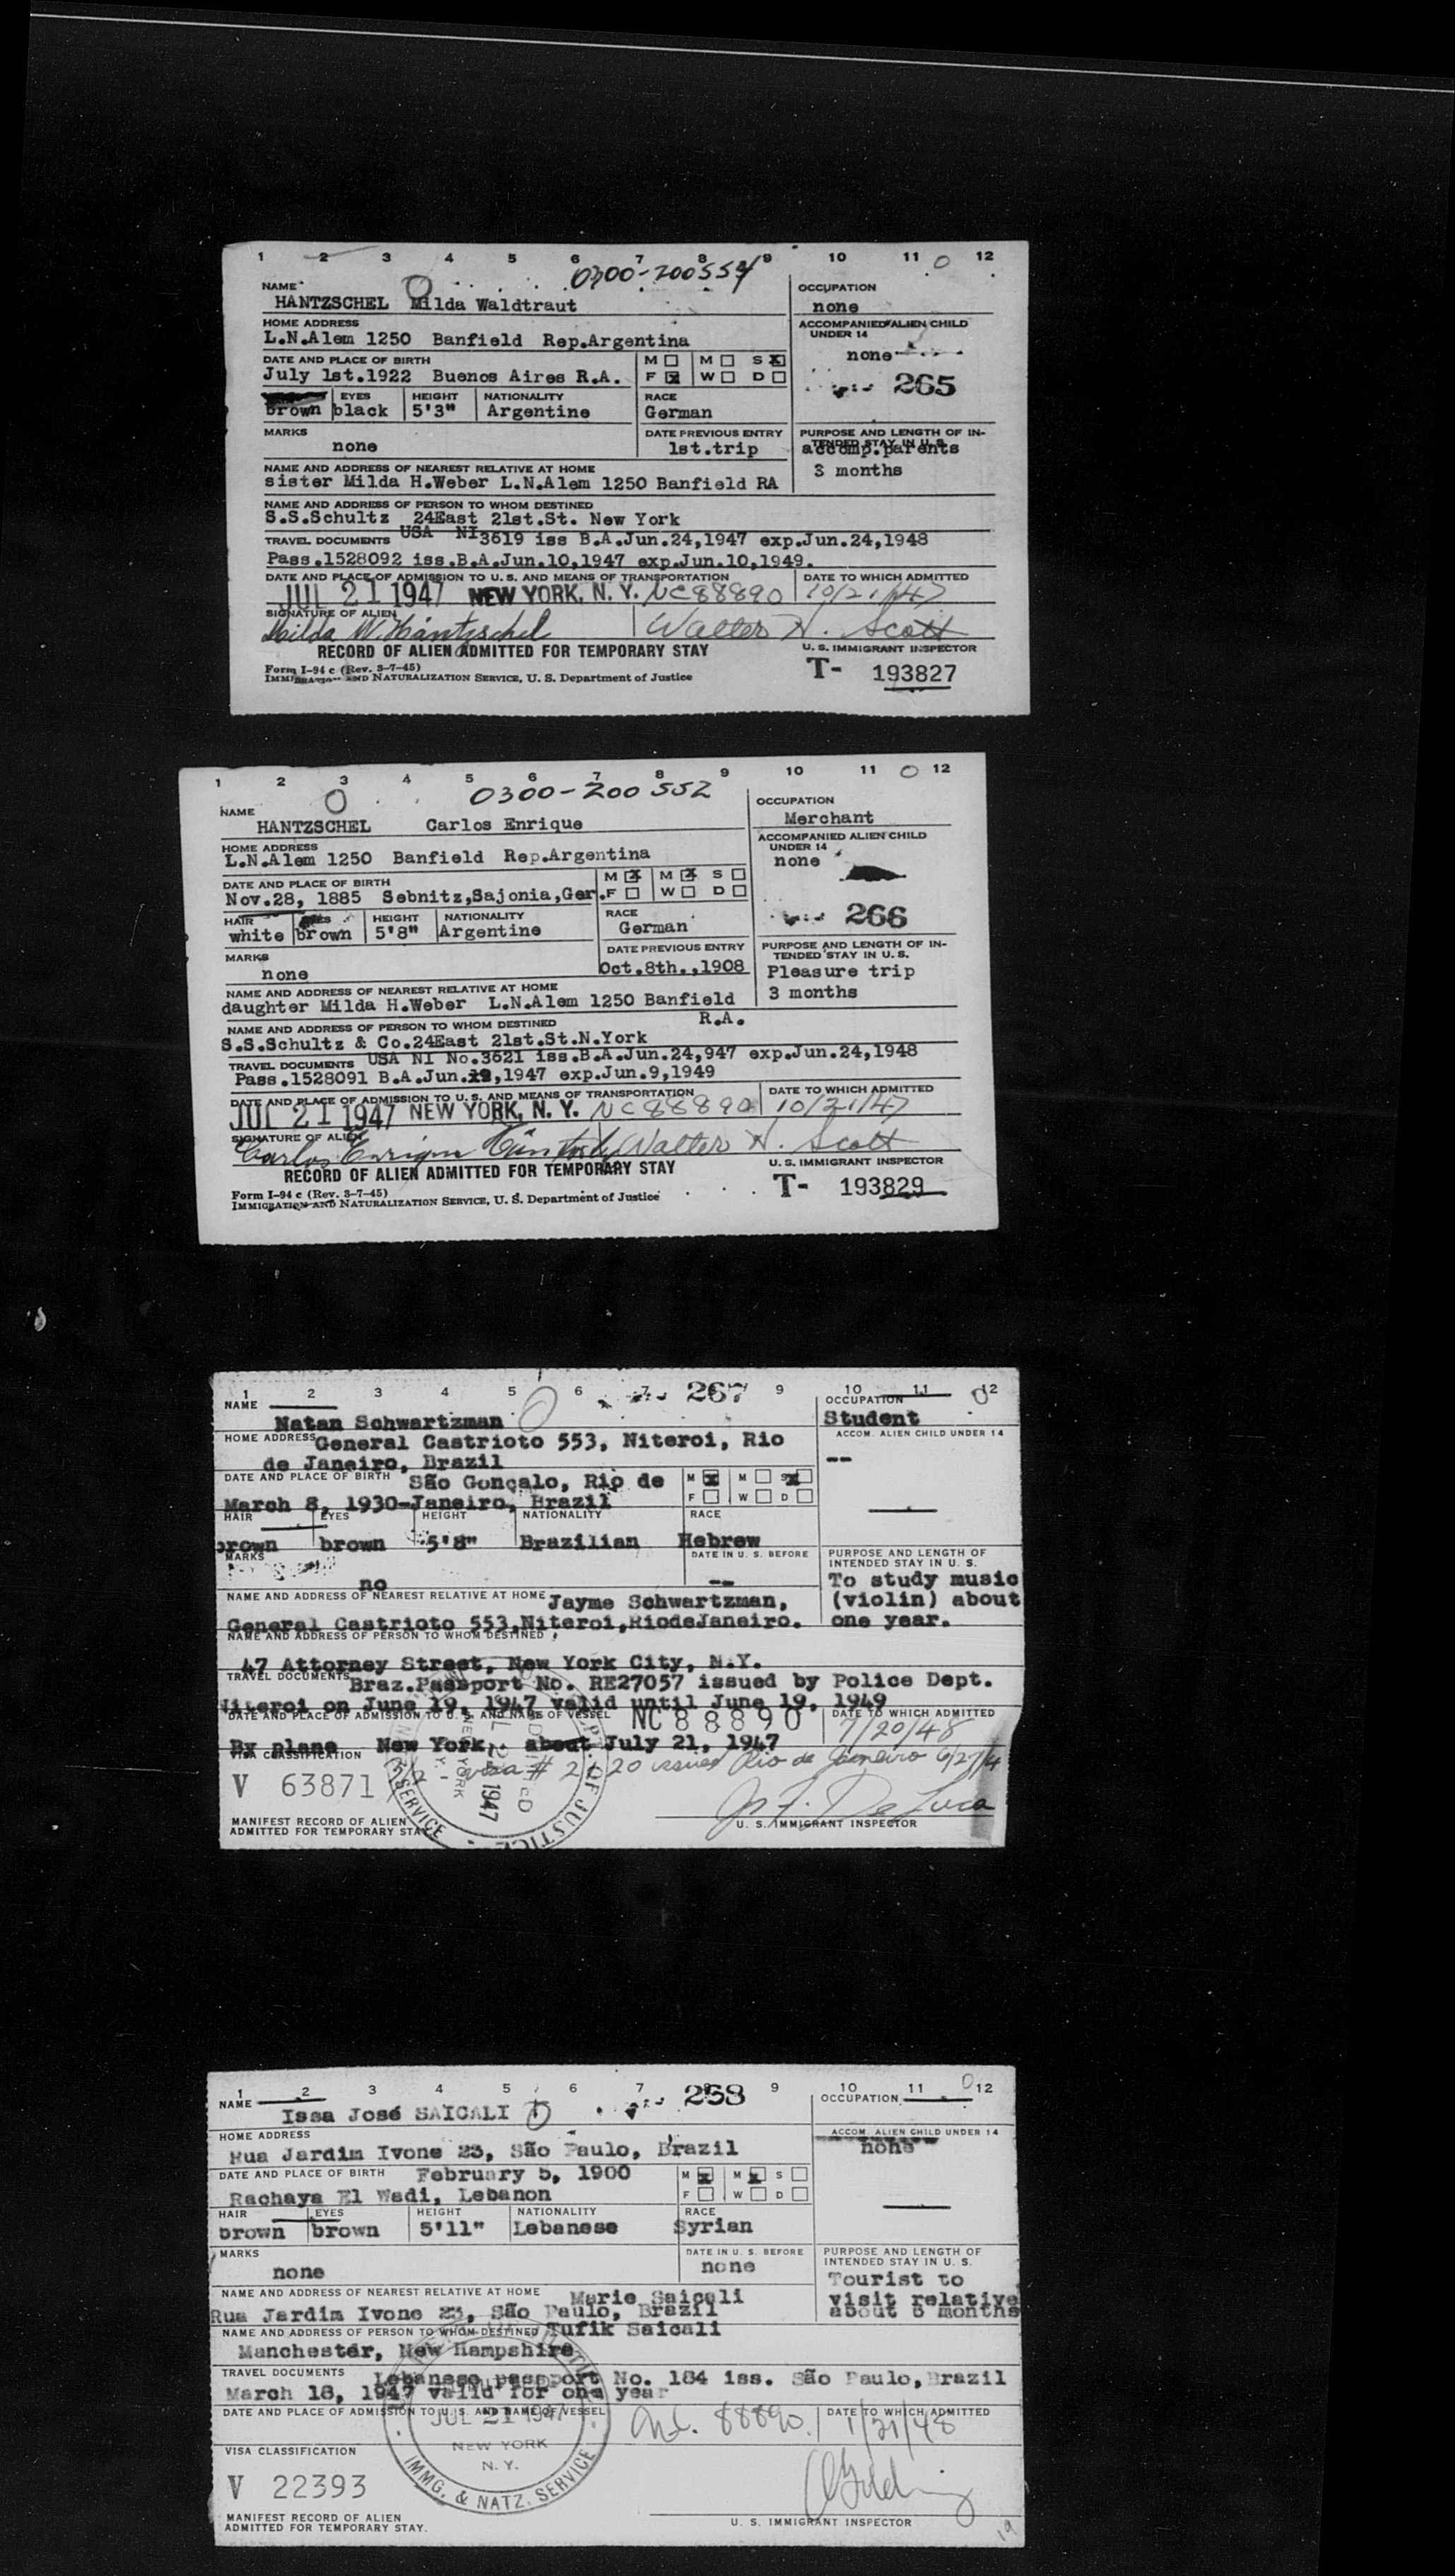 1 2 3 4 5 6 7 8 9 10 11 12
0300-200554
NAME OCCUPATION
HANTZSCHEL Milda Waldtraut none
HOME ADDRESS ACCOMPANIED ALIEN CHILD UNDER 14
L.N.Alem 1250 Banfield Rep.Argentina none
DATE AND PLACE OF BIRTH M M S
July 1st.1922 Buenos Aires R.A. F W D 265
EYES HEIGHT NATIONALITY RACE
brown black 5'3" Argentine German
MARKS DATE PREVIOUS ENTRY PURPOSE AND LENGTH OF IN-
TENDED STAY IN U.S.
none 1st.trip accomp.parents
3 months
NAME AND ADDRESS OF NEAREST RELATIVE AT HOME
sister Milda H.Weber L.N.Alem 1250 Banfield RA
NAME AND ADDRESS OF PERSON TO WHOM DESTINED
S.S.Schultz 24East 21st.St. New York
TRAVEL DOCUMENTS USA NI3619 iss B.A.Jun.24,1947 exp.Jun.24,1948
Pass.1528092 iss.B.A.Jun.10,1947 exp.Jun.10,1949.
DATE AND PLACE OF ADMISSION TO U. S. AND MEANS OF TRANSPORTATION DATE TO WHICH ADMITTED
JUL 21 1947 NEW YORK, N. Y. NC88890 10/21/47
SIGNATURE OF ALIEN
Milda W. Hantzschel Walter H. Scott
RECORD OF ALIEN ADMITTED FOR TEMPORARY STAY U. S. IMMIGRANT INSPECTOR
Form I-94 c (Rev. 3-7-45)
IMMIGRATION AND NATURALIZATION SERVICE, U. S. Department of Justice T- 193827
1 2 3 4 5 6 7 8 9 10 11 12
0300-200552
NAME OCCUPATION
HANTZSCHEL Carlos Enrique Merchant
HOME ADDRESS ACCOMPANIED ALIEN CHILD UNDER 14
L.N.Alem 1250 Banfield Rep.Argentina none
DATE AND PLACE OF BIRTH M M S
Nov.28, 1885 Sebnitz,Sajonia,Ger. F W D
266
HAIR EYES HEIGHT NATIONALITY RACE
white brown 5'8" Argentine German
MARKS DATE PREVIOUS ENTRY PURPOSE AND LENGTH OF IN-
TENDED STAY IN U. S.
none Oct.8th.,1908 Pleasure trip
3 months
NAME AND ADDRESS OF NEAREST RELATIVE AT HOME
daughter Milda H.Weber L.N.Alem 1250 Banfield
R.A.
NAME AND ADDRESS OF PERSON TO WHOM DESTINED
S.S.Schultz & Co.24East 21st.St.N.York
TRAVEL DOCUMENTS USA NI No.3621 iss.B.A.Jun.24,947 exp.Jun.24,1948
Pass.1528091 B.A.Jun. ,1947 exp.Jun.9,1949
DATE AND PLACE OF ADMISSION TO U. S. AND MEANS OF TRANSPORTATION DATE TO WHICH ADMITTED
JUL 21 1947 NEW YORK, N. Y. NC88890 10/21/47
SIGNATURE OF ALIEN
Carlos Enrique Walter H. Scott
RECORD OF ALIEN ADMITTED FOR TEMPORARY STAY U. S. IMMIGRANT INSPECTOR
Form I-94 c (Rev. 3-7-45)
IMMIGRATION AND NATURALIZATION SERVICE, U. S. Department of Justice T- 193829
1 2 3 4 5 6 7 267 9 10 11 12
NAME OCCUPATION
Natan Schwartzman Student
HOME ADDRESS General Castrioto 553, Niteroi, Rio ACCOM. ALIEN CHILD UNDER 14
de Janeiro, Brazil --
DATE AND PLACE OF BIRTH São Gonçalo, Rio de M M S
March 8, 1930-Janeiro, Brazil F W D
HAIR EYES HEIGHT NATIONALITY RACE
brown brown 5'8" Brazilian Hebrew
MARKS DATE IN U. S. BEFORE PURPOSE AND LENGTH OF
INTENDED STAY IN U. S.
no -- To study music
(violin) about
one year.
NAME AND ADDRESS OF NEAREST RELATIVE AT HOME Jayme Schwartzman,
General Castrioto 553,Niteroi,RiodeJaneiro.
NAME AND ADDRESS OF PERSON TO WHOM DESTINED
47 Attorney Street, New York City, N.Y.
TRAVEL DOCUMENTS Braz.Passport No. RE27057 issued by Police Dept.
Niteroi on June 19, 1947 valid until June 19, 1949
DATE AND PLACE OF ADMISSION TO U. S. AND NAME OF VESSEL NC88890 DATE TO WHICH ADMITTED
By plane New York, about July 21, 1947 7/20/48
VISA CLASSIFICATION 3/2 - visa # 2120 issued Rio de Janeiro 6/27/4
V 63871
U. S. IMMIGRANT INSPECTOR
MANIFEST RECORD OF ALIEN
ADMITTED FOR TEMPORARY STAY
1 2 3 4 5 6 7 268 9 10 11 12
NAME OCCUPATION
Issa José SAICALI
HOME ADDRESS ACCOM. ALIEN CHILD UNDER 14
Rua Jardim Ivone 23, São Paulo, Brazil none
DATE AND PLACE OF BIRTH February 5, 1900 M M S
Rachaya El Wadi, Lebanon F W D
HAIR EYES HEIGHT NATIONALITY RACE
brown brown 5'11" Lebanese Syrian
MARKS DATE IN U. S. BEFORE PURPOSE AND LENGTH OF
INTENDED STAY IN U. S.
none none Tourist to
visit relative
about 6 months
NAME AND ADDRESS OF NEAREST RELATIVE AT HOME Marie Saicali
Rua Jardim Ivone 23, São Paulo, Brazil
NAME AND ADDRESS OF PERSON TO WHOM DESTINED Tufik Saicali
Manchester, New Hampshire
TRAVEL DOCUMENTS Lebanese passport No. 184 iss. São Paulo, Brazil
March 18, 1947 valid for one year
DATE AND PLACE OF ADMISSION TO U. S. AND NAME OF VESSEL DATE TO WHICH ADMITTED
JUL 21 1947 N.C. 88890 1/21/48
NEW YORK
N. Y.
IMMG. & NATZ. SERVICE
VISA CLASSIFICATION
V 22393
MANIFEST RECORD OF ALIEN
ADMITTED FOR TEMPORARY STAY.
U. S. IMMIGRANT INSPECTOR
19